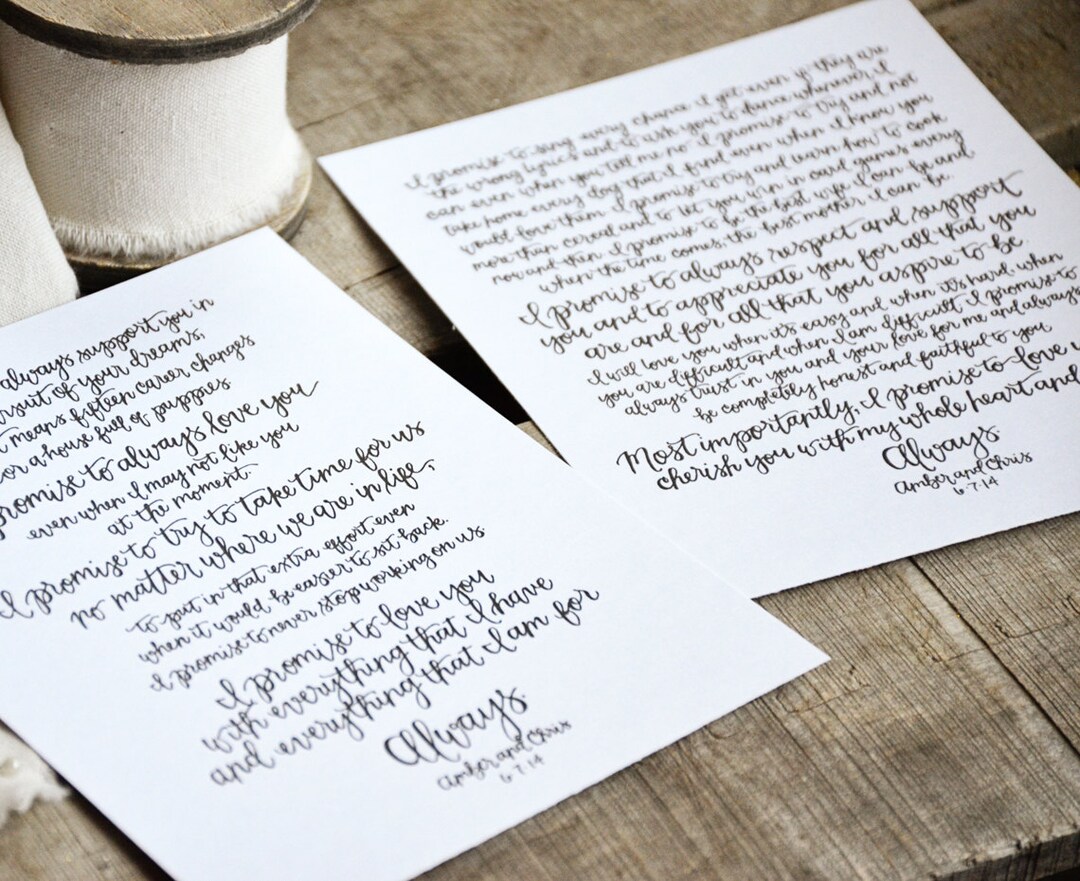 always support you in
rsuit of your dreams,
t means fifteen career changes
or a house full of puppies.
promise to always love you
even when I may not like you
at the moment.
I promise to try to take time for us
no matter where we are in life,
to put in that extra effort even
when it would be easier to sit back.
I promise to never stop working on us.
I promise to love you
with everything that I have
and everything that I am for
Always.
Amber and Chris
6.7.14
I promise to sing every chance I get even if they are
the wrong lyrics and to ask you to dance whenever I
can even when you tell me no. I promise to try and not
take home every dog that I find even when I know you
would love them. I promise to try and learn how to cook
more than cereal and to let you win in card games every
now and then. I promise to be the best wife I can be and
when the time comes, the best mother I can be.
I promise to always respect and support
you and to appreciate you for all that you
are and for all that you aspire to be.
I will love you when it's easy and when it's hard, when
you are difficult and when I am difficult. I promise to
always trust in you and your love for me and always
be completely honest and faithful to you
Most importantly, I promise to love
cherish you with my whole heart and
Always.
Amber and Chris
6.7.14